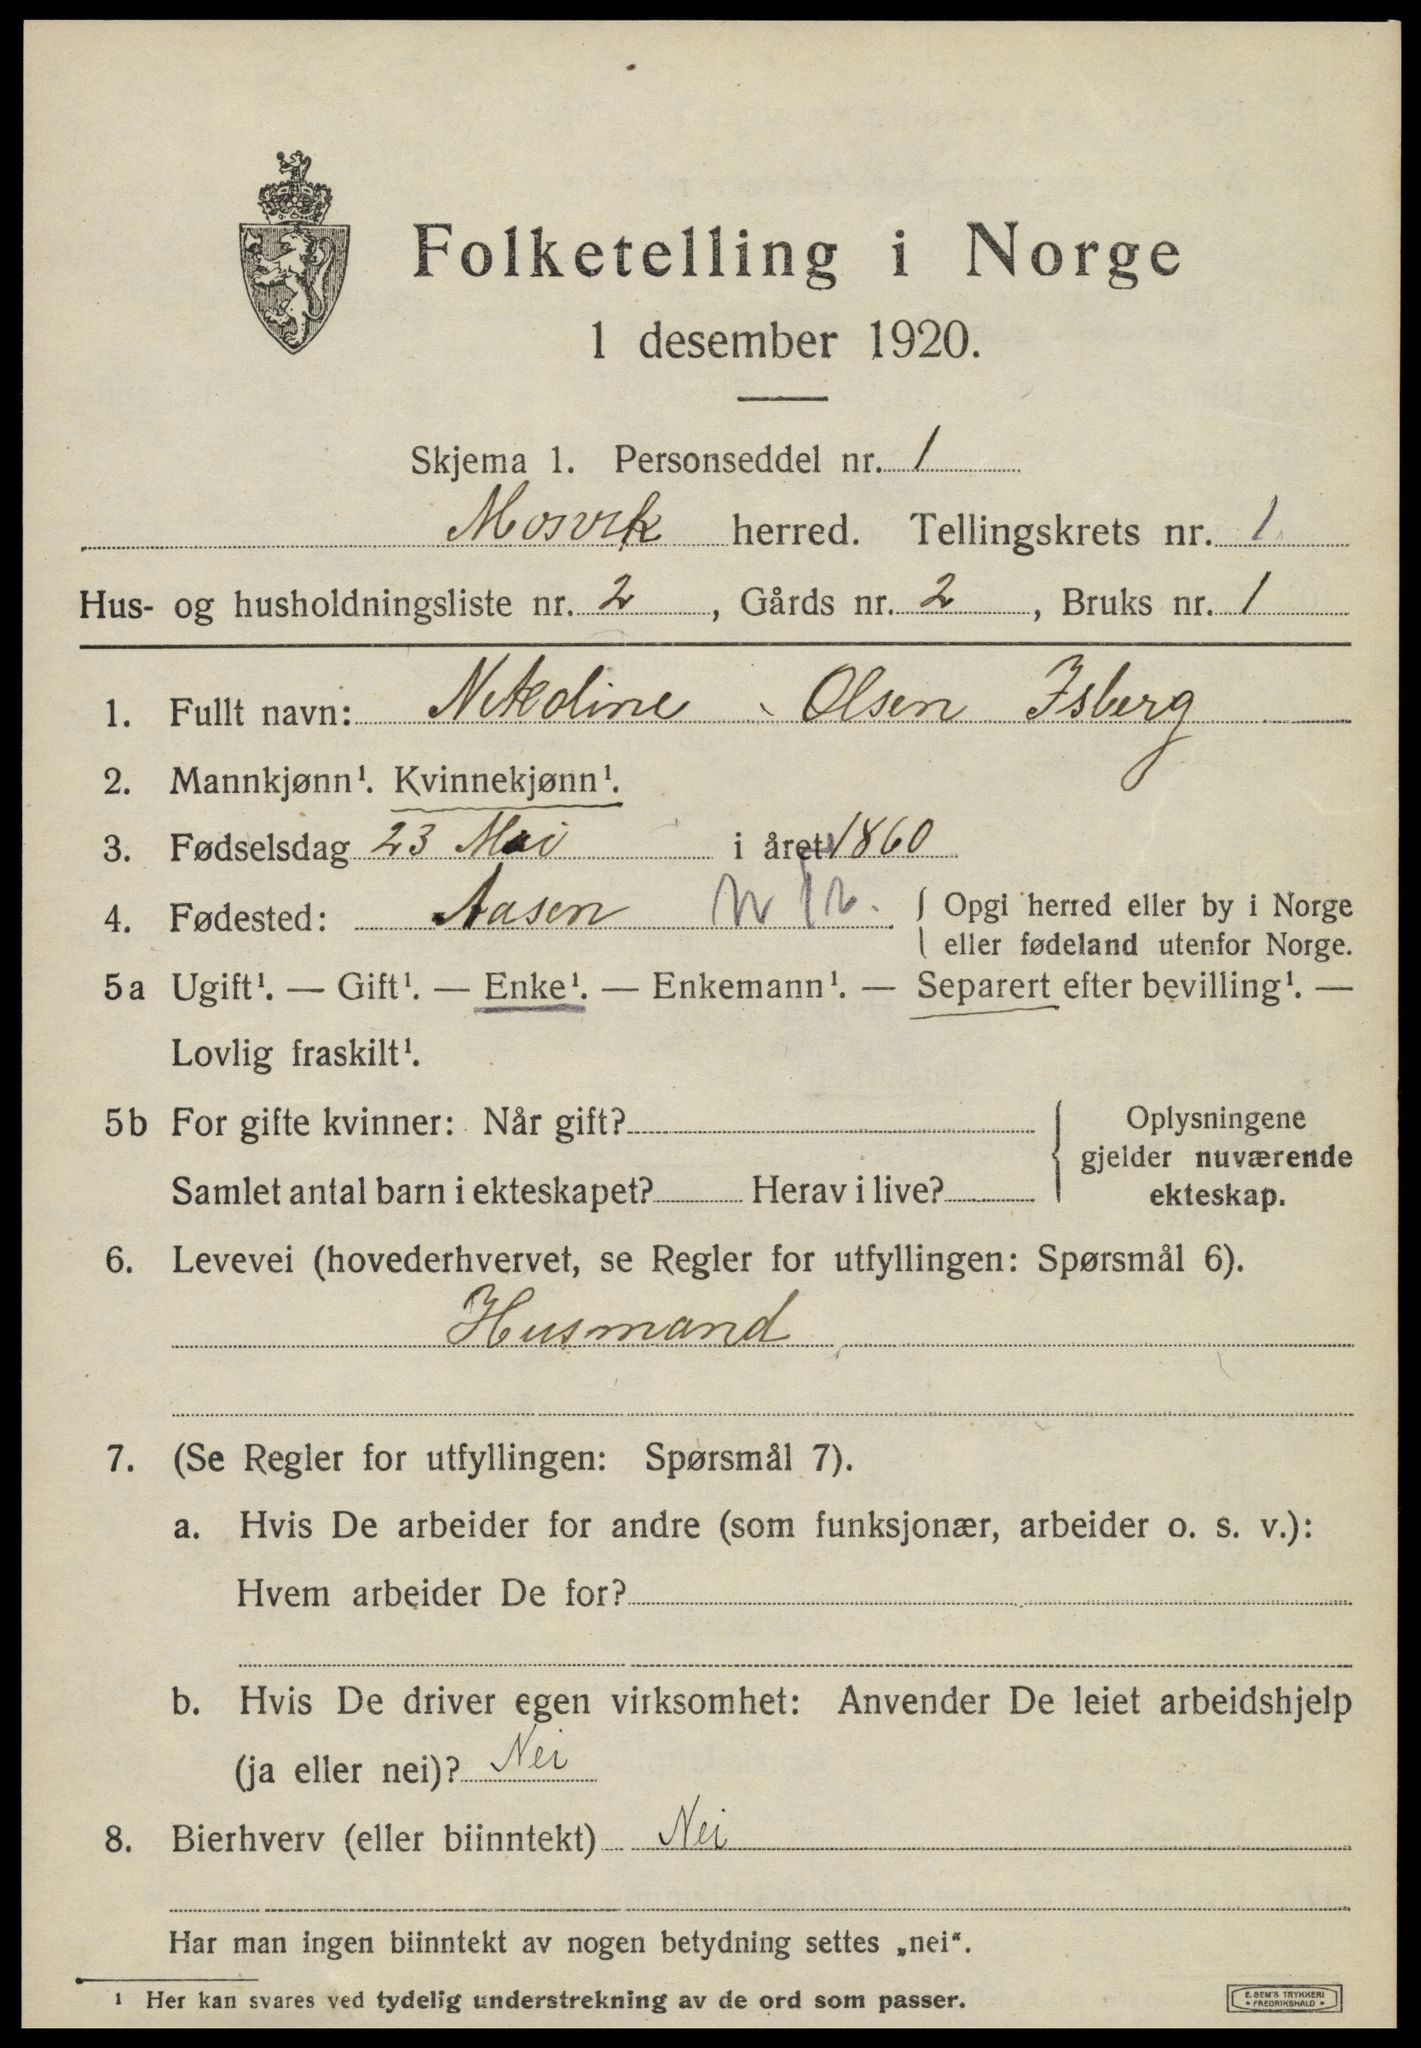 Folketelling i Norge
1 desember 1920.
Skjema 1. Personseddel nr. 1
Mosvik herred. Tellingskrets nr. 1
Hus- og husholdningsliste nr. 2, Gårds nr. 2, Bruks nr. 1
1. Fullt navn: Nikoline Olsen Isberg
2. Mannkjønn¹. Kvinnekjønn¹.
3. Fødselsdag 23 Mai i året 1860
4. Fødested: Aasen { Opgi herred eller by i Norge
eller fødeland utenfor Norge.
5a Ugift¹. — Gift¹. — Enke¹. — Enkemann¹. — Separert efter bevilling¹. —
Lovlig fraskilt¹.
5b For gifte kvinner: Når gift?
Samlet antal barn i ekteskapet? Herav i live?
Oplysningene
gjelder nuværende
ekteskap.
6. Levevei (hovederhvervet, se Regler for utfyllingen: Spørsmål 6).
Husmand
7. (Se Regler for utfyllingen: Spørsmål 7).
a. Hvis De arbeider for andre (som funksjonær, arbeider o. s. v.):
Hvem arbeider De for?
b. Hvis De driver egen virksomhet: Anvender De leiet arbeidshjelp
(ja eller nei)? Nei
8. Bierhverv (eller biinntekt) Nei
Har man ingen biinntekt av nogen betydning settes „nei“.
¹ Her kan svares ved tydelig understrekning av de ord som passer.
E. SEM'S TRYKKERI
• FREDRIKSHALD •